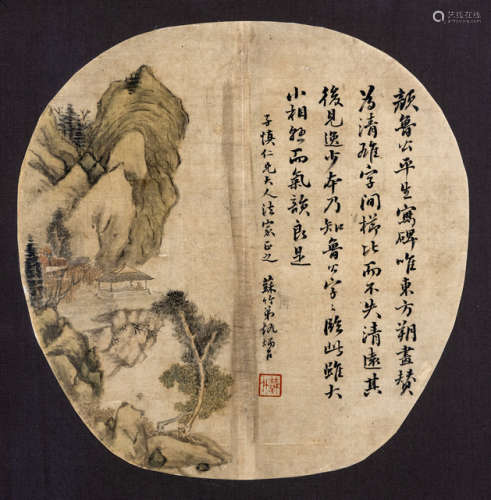 顏魯公平生寫碑唯東方朔畫贊
為清雄字間櫛比而不失清遠其
後見逸少本乃知魯公字〻臨此雖大
小相懸而氣韻良是
子慎仁兄大人法家正之
蘇竹弟
艺线在线